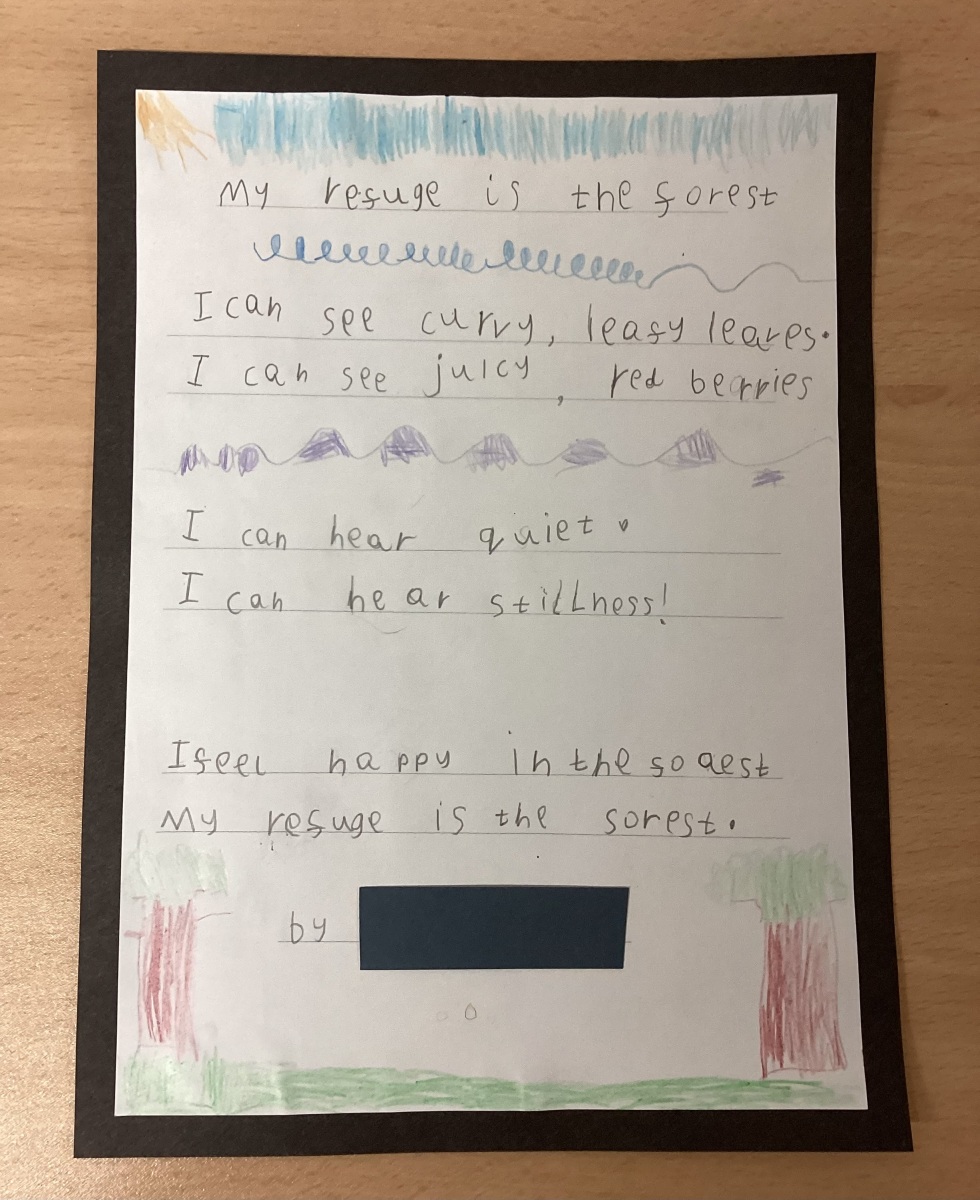 My refuge is the forest
I can see curvy, leafy leaves.
I can see juicy, red berries
I can hear quiet.
I can hear stillness!
I feel happy in the forest
My refuge is the forest.
by